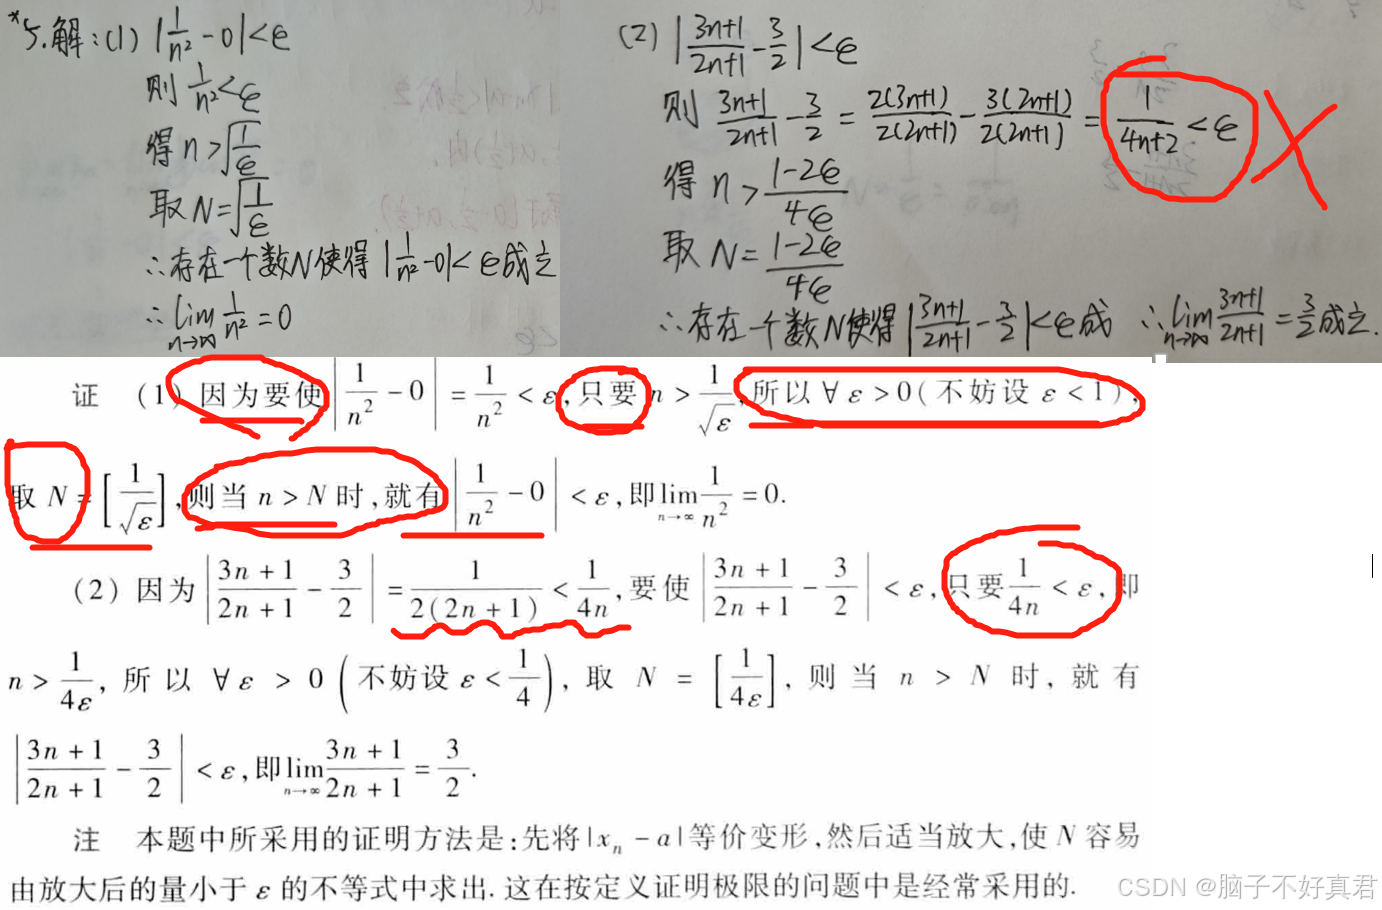 *5.解:(1) |1/n²-0|<ε
则 1/n²<ε
得 n>√(1/ε)
取 N=√(1/ε)
∴存在一个数N使得 |1/n²-0|<ε成立
∴lim n→∞ 1/n²=0
(2) |(3n+1)/(2n+1)-3/2|<ε
则 (3n+1)/(2n+1)-3/2=2(3n+1)/2(2n+1)-3(2n+1)/2(2n+1)=1/(4n+2)<ε
得 n>(1-2ε)/4ε
取 N=(1-2ε)/4ε
∴存在一个数N使得|(3n+1)/(2n+1)-3/2|<ε成 ∴lim n→∞ (3n+1)/(2n+1)=3/2成立.
证 (1) 因为要使|1/n²-0|=1/n²<ε,只要 n>1/√ε,所以∀ε>0(不妨设ε<1),
取N=[1/√ε],则当n>N时,就有|1/n²-0|<ε,即lim n→∞ 1/n²=0.
(2) 因为|(3n+1)/(2n+1)-3/2|=1/2(2n+1)<1/4n,要使|(3n+1)/(2n+1)-3/2|<ε,只要1/4n<ε,即
n>1/4ε,所以∀ε>0(不妨设ε<1/4),取N=[1/4ε],则当n>N时,就有
|(3n+1)/(2n+1)-3/2|<ε,即lim n→∞ (3n+1)/(2n+1)=3/2.
注 本题中所采用的证明方法是:先将|xₙ-a|等价变形,然后适当放大,使N容易
由放大后的量小于ε的不等式中求出.这在按定义证明极限的问题中是经常采用的.
CSDN @脑子不好真君